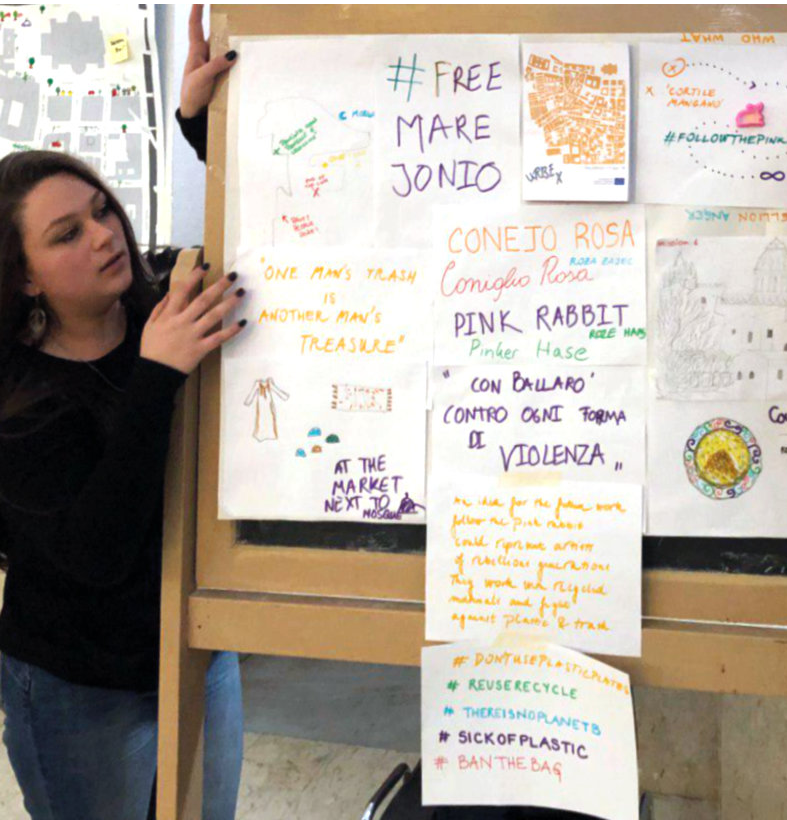 #FREE
MARE
JONIO
URBEX
WHO WHAT
X 'CORTILE
MANGANO'
#FOLLOWTHEPINK
"ONE MAN'S TRASH
IS
ANOTHER MAN'S
TREASURE"
AT THE
MARKET
NEXT TO
MOSQUE
CONEJO ROSA
Coniglio Rosa
PINK RABBIT
ROZE HAAS
Pinker Hase
"CON BALLARO'
CONTRO OGNI FORMA
DI
VIOLENZA"
ANGER
Mission 6
An idea for the future work
follow the pink rabbit
could represent artists
of rebellious generations
They work with recycled
materials and fight
against plastic & trash
# DONTUSEPLASTICPLATES
# REUSERECYCLE
# THEREISNOPLANETB
# SICKOFPLASTIC
# BANTHEBAG